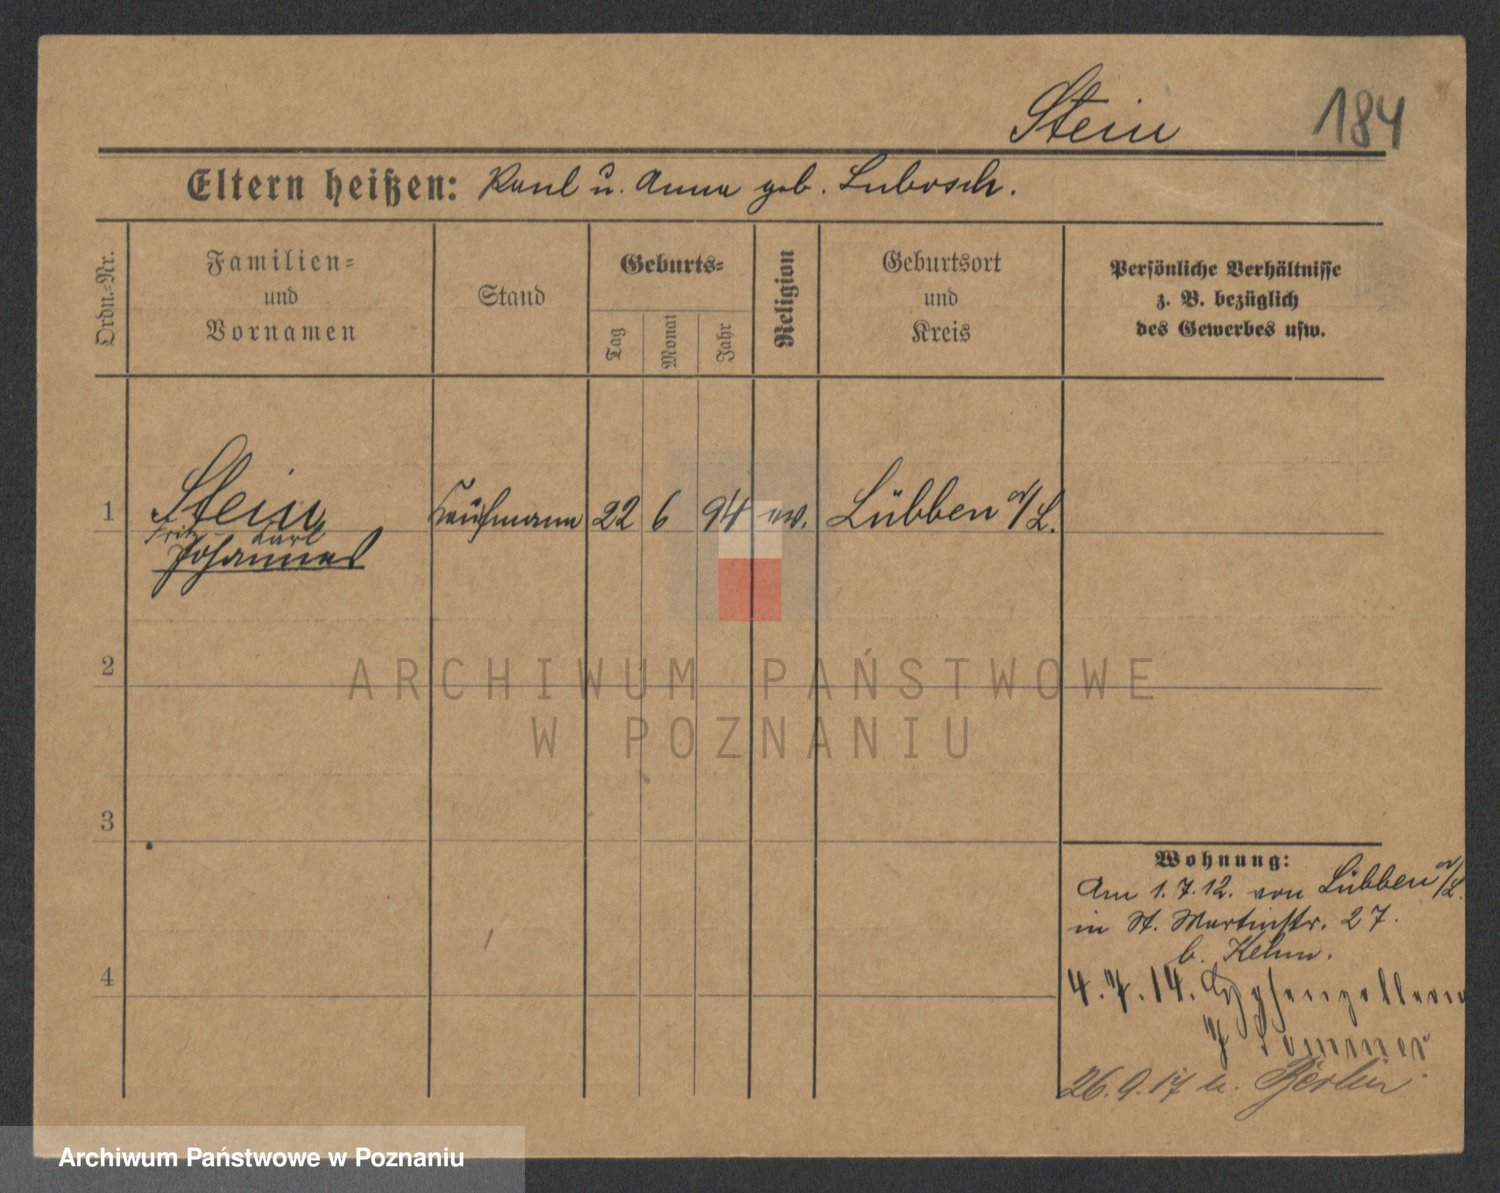 Stein 184
Eltern heißen: Paul u. Anna geb. Lubosch.
Ordn.-Nr.
Familien-
und
Vornamen
Stand
Geburts-
Tag
Monat
Jahr
Religion
Geburtsort
und
Kreis
Persönliche Verhältnisse
z. B. bezüglich
des Gewerbes usw.
1 Stein Kaufmann 22 6 94 ev. Lübben n/L.
Fritz Karl
Johannes
2
3
4
Wohnung:
Am 1.7.12. von Lübben n/L.
in St. Martinstr. 27.
b. Kehm.
4.7.14.
7 Sommer
26.9.17 n. Berlin.
ARCHIWUM PAŃSTWOWE
W POZNANIU
Archiwum Państwowe w Poznaniu